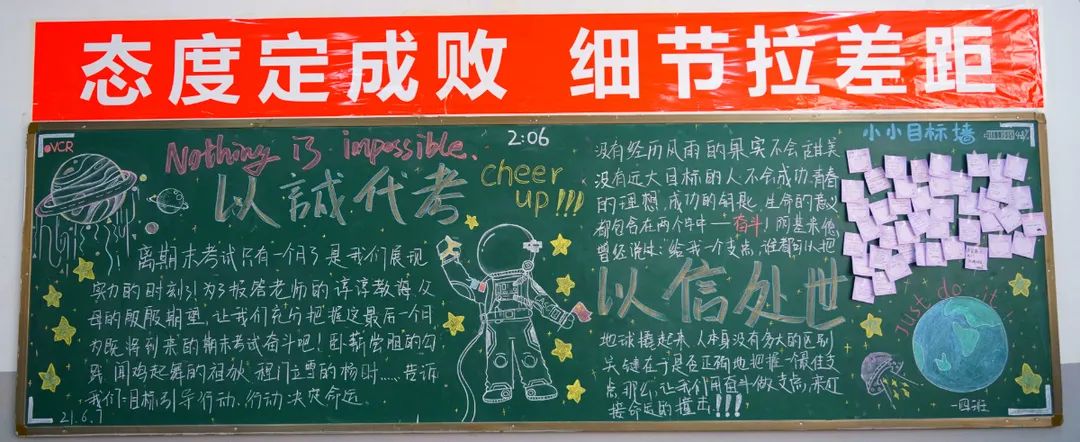 态度定成败 细节拉差距
VCR
Nothing is impossible.
2:06
以誠代考
cheer
up!!!
离期末考试只有一个月了是我们展现
实力的时刻引为了报答老师的谆谆教诲、父
母的殷殷期望,让我们充分把握这最后一个月
为既将到来的期末考试奋斗吧!卧薪尝胆的勾
践、闻鸡起舞的祖狄、程门立雪的杨时……告诉
我们:目标引导行动、行动决定命运。
21.6.7
没有经历风雨的果实不会甜美
没有远大目标的人不会成功,青春
的理想,成功的钥匙,生命的意义
都包含在两个字中——奋斗!阿基米德
曾经说过:给我一个支点,谁都可以把
以信处世
地球撬起来,人本身没有多大的区别
关键在于是否正确地把握一个最佳支
点,那么,让我们用奋斗做支点,来迎
接命运的撞击!!!
小小目标墙
Just do it!
一四班